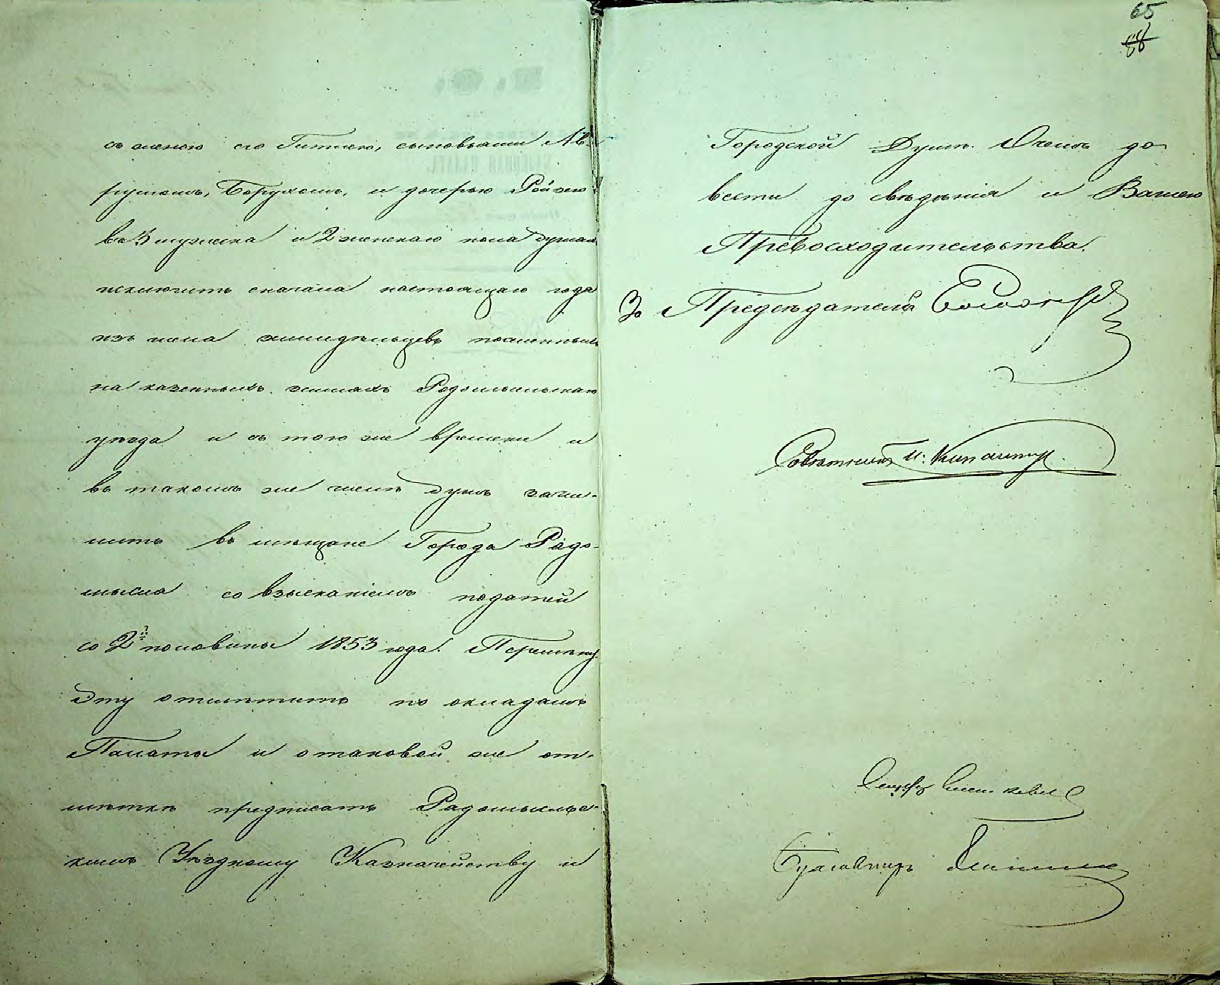 съ женою его Гитлею, сыновьями Ав-
румомъ, Борухомъ, и дочерью Ройзею
въ 3 мужеска и 2 женскаго пола душахъ
исключить сначала настоящаго года
изъ числа земледѣльцевъ поселенныхъ
на казенныхъ земляхъ Радомысльскаго
уѣзда и съ того же времени и
въ такомъ же числѣ душъ зачи-
слить въ мѣщане Города Радо-
мысля со взысканіемъ податей
со 2й половины 1853 года. Перемѣну
эту отмѣтить по окладамъ
Палаты и о таковой же от-
мѣткѣ предписать Радомысльс-
кимъ Уѣздному Казначейству и
65
68
Городской Думѣ. О чемъ до-
вести до свѣдѣнія и Вашего
Превосходительства.
За Предсѣдателя
Совѣтникъ И.
Бухгалтеръ